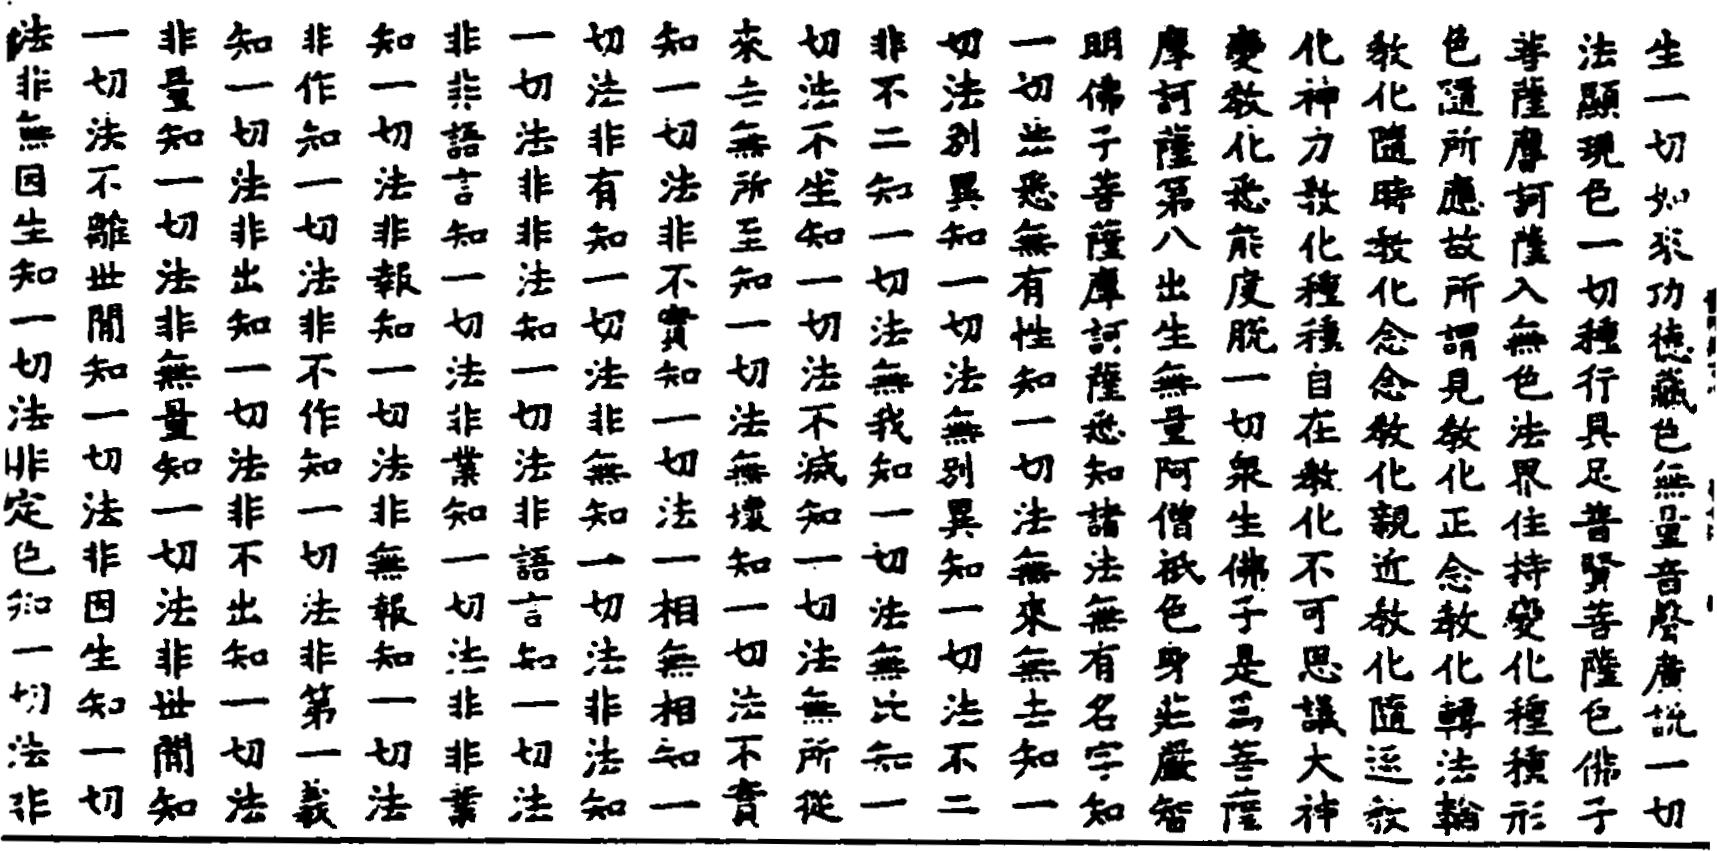 生一切如來功德藏色無量音聲廣說一切
法顯現色一切種行具足普賢菩薩色佛子
菩薩摩訶薩入無色法界住持變化種種形
色隨所應故所謂見教化正念教化轉法輪
教化隨時教化念念教化親近教化隨逐教
化神力教化種種自在教化不可思議大神
變教化悉能度脫一切衆生佛子是爲菩薩
摩訶薩第八出生無量阿僧祇色身莊嚴智
明佛子菩薩摩訶薩悉知諸法無有名字知
一切法悉無有性知一切法無來無去知一
切法別異知一切法無別異知一切法不二
非不二知一切法無我知一切法無比知一
切法不生知一切法不滅知一切法無所從
來去無所至知一切法無壞知一切法不實
知一切法非不實知一切法一相無相知一
切法非有知一切法非無知一切法非法知
一切法非非法知一切法非語言知一切法
非非語言知一切法非業知一切法非非業
知一切法非報知一切法非無報知一切法
非作知一切法非不作知一切法非第一義
知一切法非出知一切法非不出知一切法
非量知一切法非無量知一切法非世間知
一切法不離世間知一切法非因生知一切
法非無因生知一切法非定色知一切法非